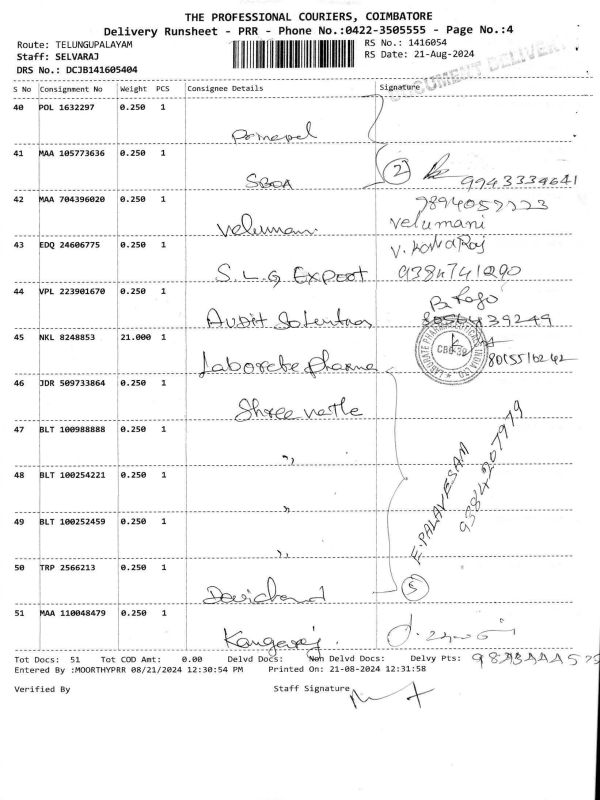 THE PROFESSIONAL COURIERS, COIMBATORE
Delivery Runsheet - PRR - Phone No.:0422-3505555 - Page No.:4
Route: TELUNGUPALAYAM RS No.: 1416054
Staff: SELVARAJ RS Date: 21-Aug-2024
DRS No.: DCJB141605404
DOCUMENT DELIVERY
S No Consignment No Weight PCS Consignee Details Signature
40 POL 1632297 0.250 1
41 MAA 105773636 0.250 1 SBOA 2 9943334641
42 MAA 704396020 0.250 1 Velumani Velumani
43 EDQ 24606775 0.250 1 S.L.G Export 9384741290
44 VPL 223901670 0.250 1 Audit
45 NKL 8248853 21.000 1 Laborate pharma
LABORATE PHARMACEUTICALS INDIA CBE-39
46 JDR 509733864 0.250 1 Shree
47 BLT 100988888 0.250 1 "
48 BLT 100254221 0.250 1 "
49 BLT 100252459 0.250 1 "
E. PALAVESAM
9384207979
50 TRP 2566213 0.250 1 5
51 MAA 110048479 0.250 1 Kangaraj.
Tot Docs: 51 Tot COD Amt: 0.00 Delvd Docs: Non Delvd Docs: Delvy Pts:
Entered By :MOORTHYPRR 08/21/2024 12:30:54 PM Printed On: 21-08-2024 12:31:58
Verified By Staff Signature